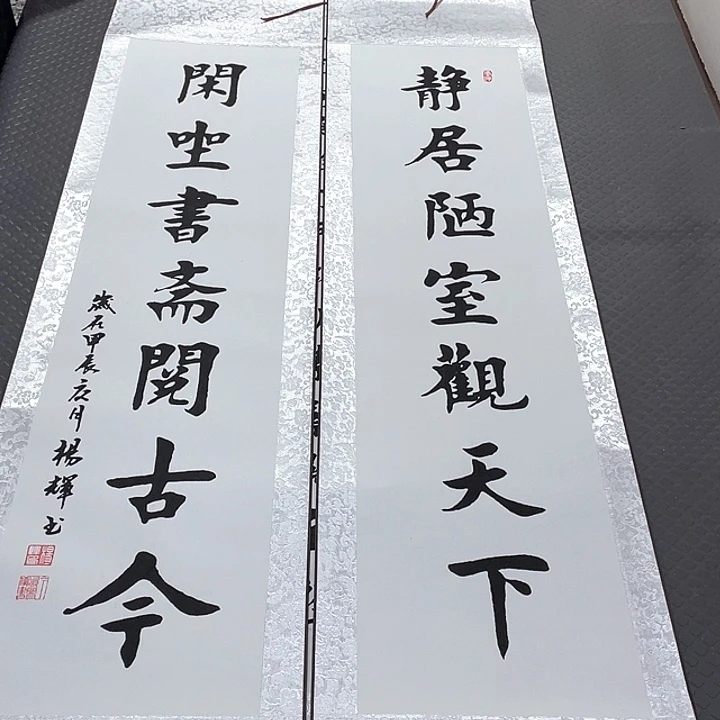 静居陋室觀天下
閑坐書斎閲古今
歲在甲辰
月楊輝玉